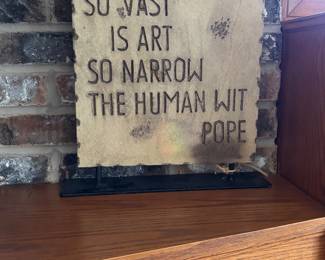 SO VAST
IS ART
SO NARROW
THE HUMAN WIT
POPE